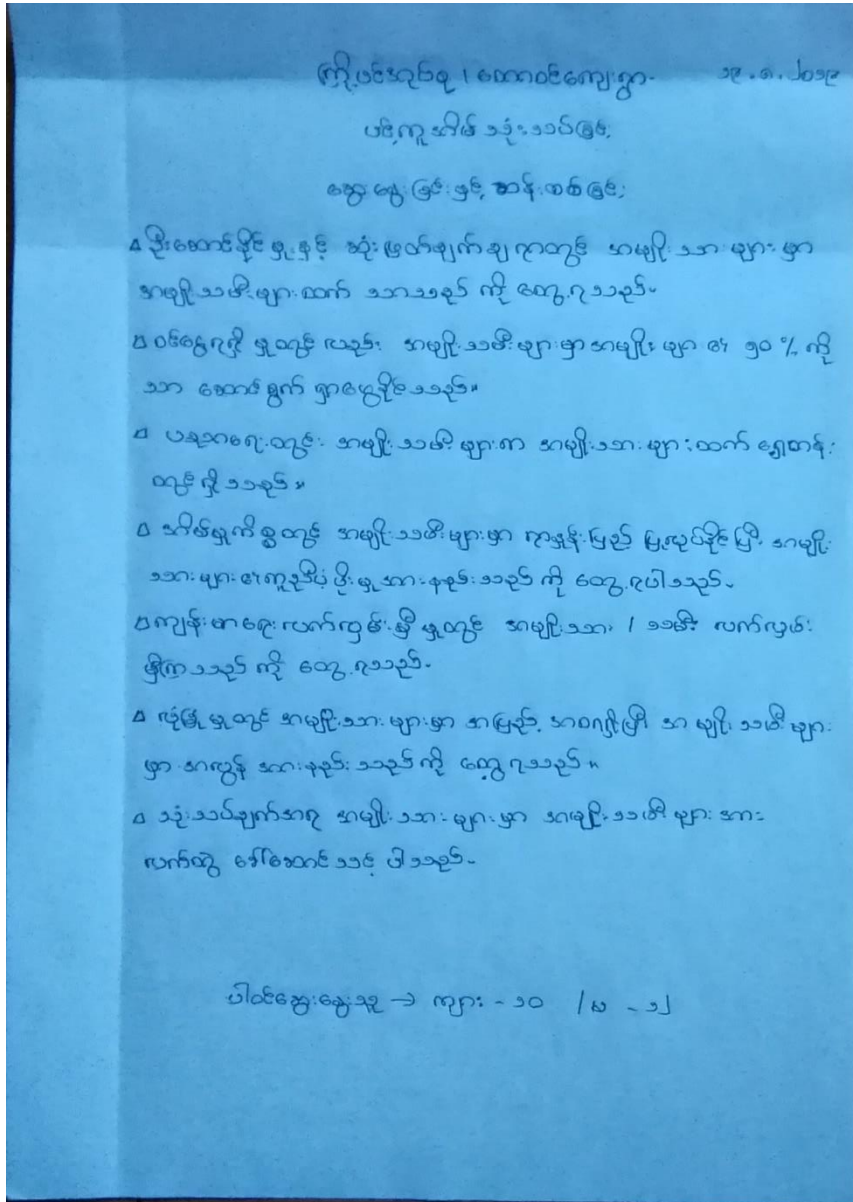 ကြို့ပင်အုပ်စု ၊ တောဝင်ကျေးရွာ ၁၉.၈.၂၀၁၉
ပင့်ကူအိမ် သုံးသပ်ခြင်း
ဆွေးနွေးခြင်းနှင့် ဆန်းစစ်ခြင်း
ဦးဆောင်နိုင်မှုနှင့် ဆုံးဖြတ်ချက်ချရာတွင် အမျိုးသားများမှာ
အမျိုးသမီးများထက် သာသည်ကို တွေ့ရသည်။
ဝင်ငွေရရှိမှုတွင်လည်း အမျိုးသမီးများမှာ အမျိုးများ၏ ၅၀ % ကို
သာ ဆောင်ရွက် ရှာဖွေနိုင်သည်။
ပညာရေးတွင် အမျိုးသမီးများက အမျိုးသားများထက် ရှေ့တန်း
တွင်ရှိသည်။
အိမ်မှုကိစ္စတွင် အမျိုးသမီးများမှာ ရာနှုန်းပြည့် ပြုလုပ်နိုင်ပြီး အမျိုး
သားများ၏ ကူညီပံ့ပိုးမှု အားနည်းသည်ကို တွေ့ရပါသည်။
ကျန်းမာရေးလက်လှမ်းမှီမှုတွင် အမျိုးသား / သမီး လက်လှမ်း
မှီကြသည်ကို တွေ့ရသည်။
လုံခြုံမှုတွင် အမျိုးသားများမှာ အပြည့်အဝရှိပြီး အမျိုးသမီးများ
မှာ အလွန် အားနည်းသည်ကို တွေ့ရသည်။
သုံးသပ်ချက်အရ အမျိုးသားများမှာ အမျိုးသမီးများအား
လက်တွဲ ခေါ်ဆောင်သင့်ပါသည်။
ပါဝင်ဆွေးနွေးသူ → ကျား - ၁၀ / မ - ၁၂